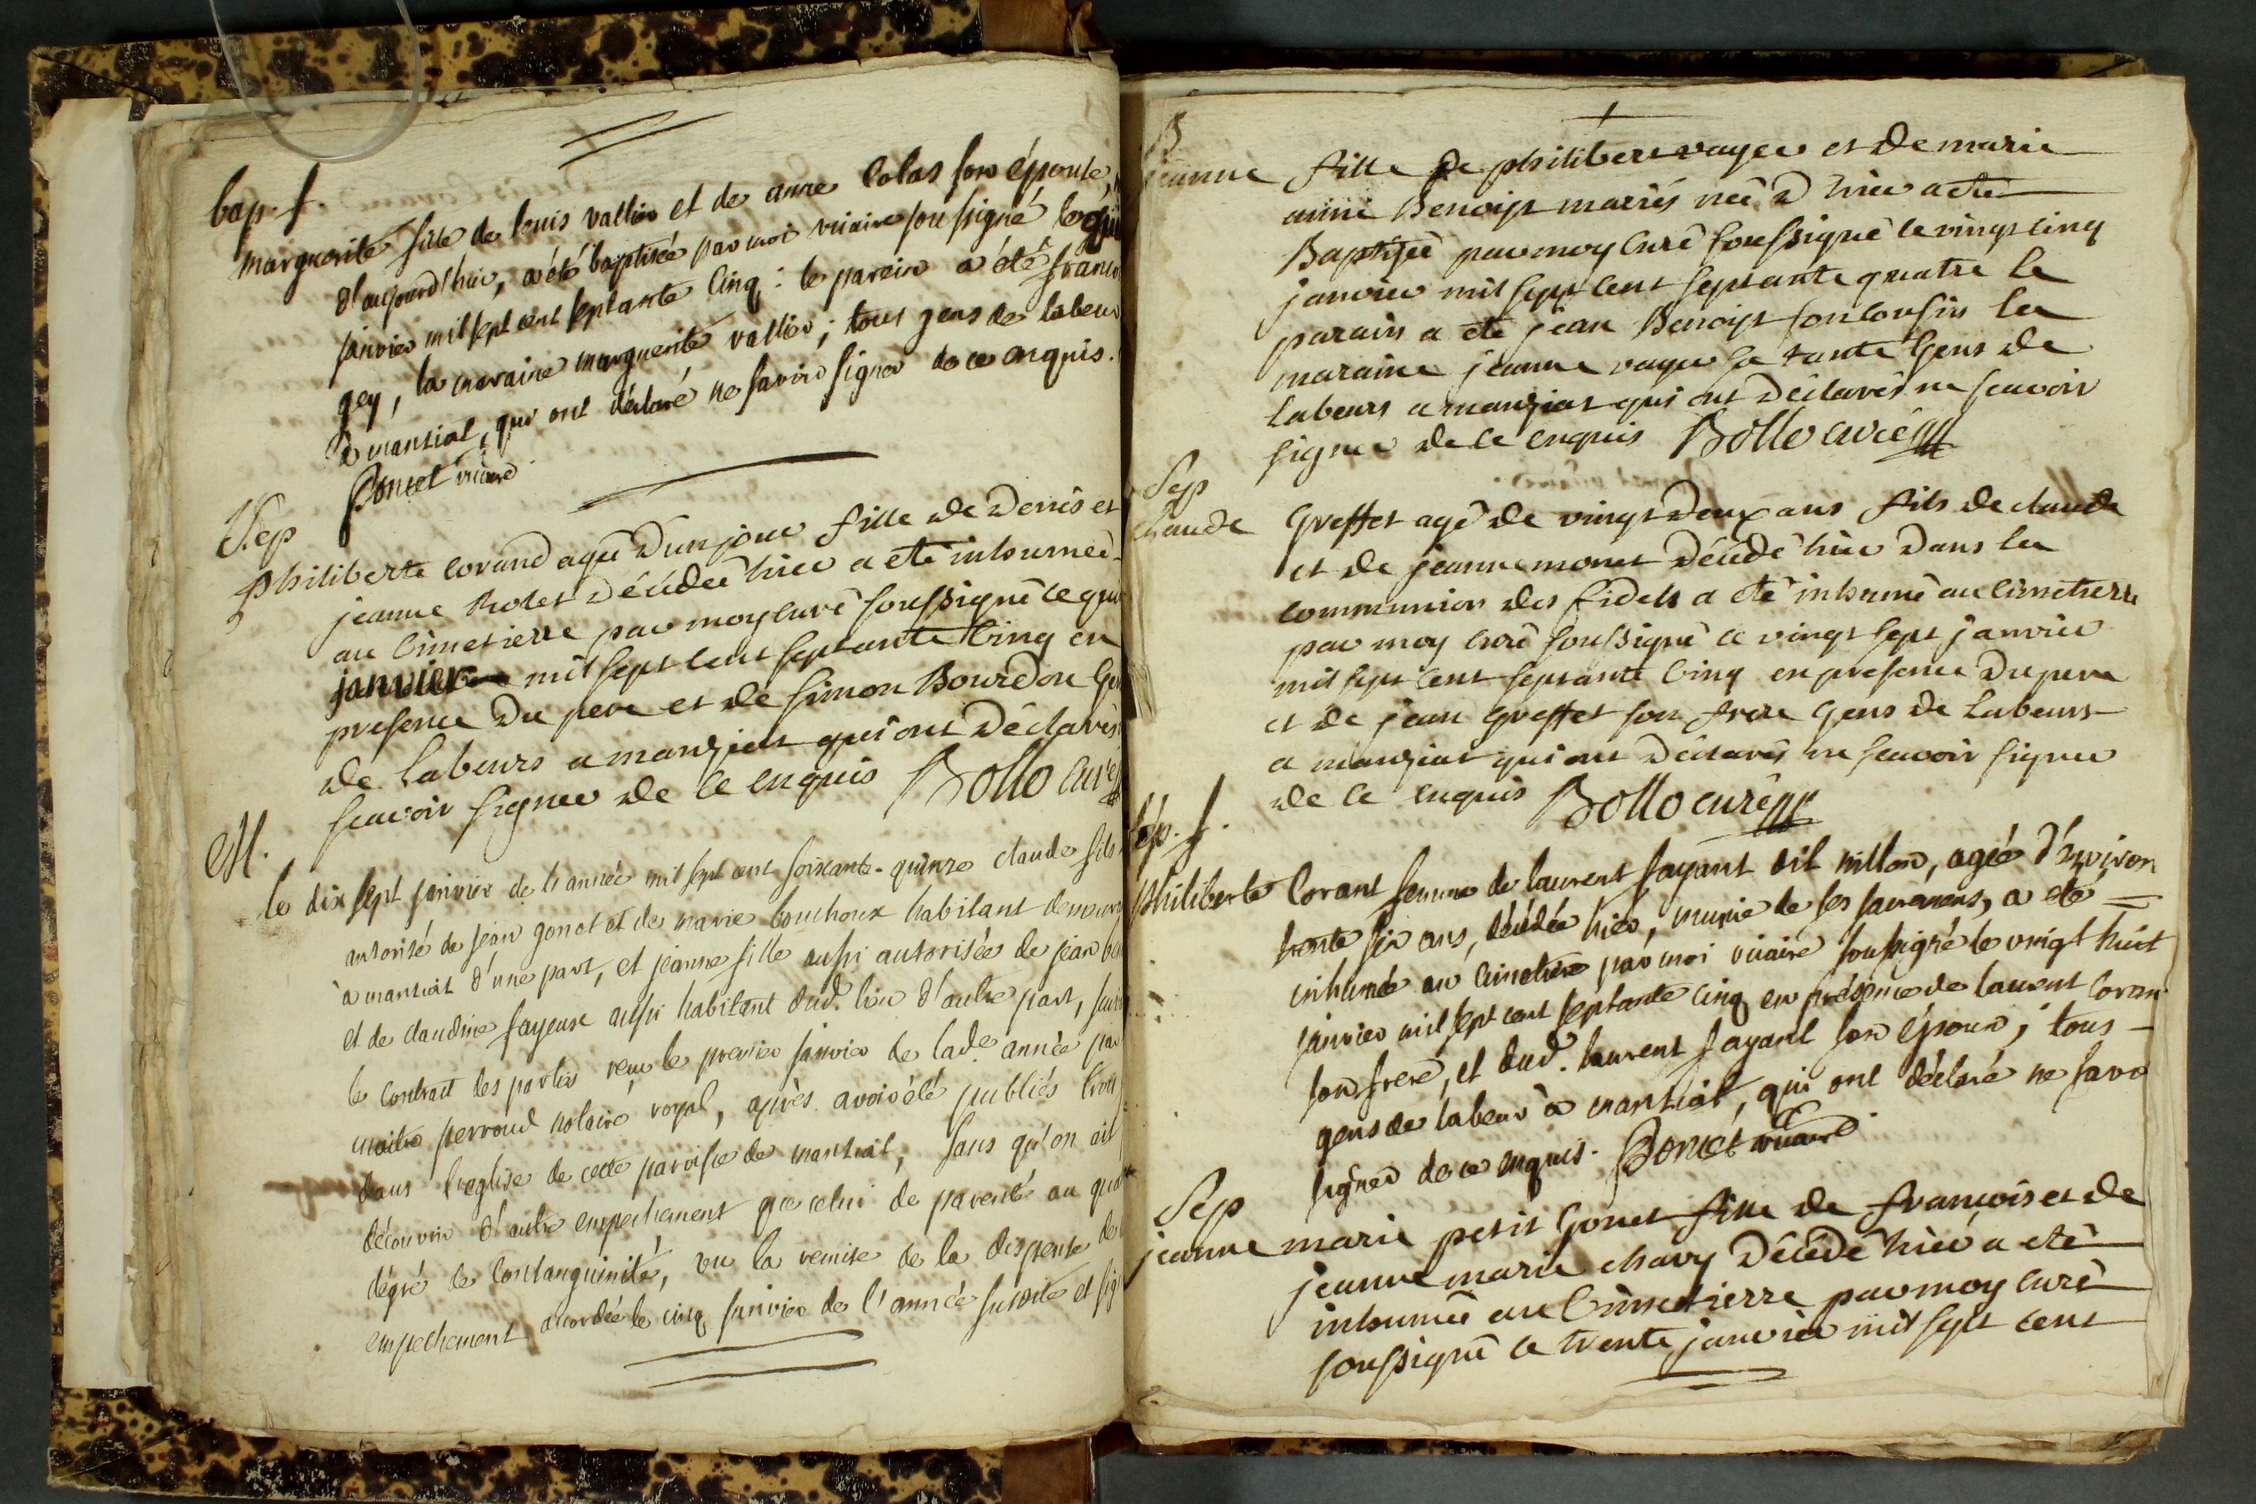 bap. f.
Marguerite fille de louis vallier et de anne Colas son épouse,
d'aujourd'hui, a été baptisée par moi vicaire soussigné le
janvier mil sept cent septante Cinq : le parein a été franc
gey, la maraine marguerite vallier ; tous gens de labeur
à mantiat, qui ont déclaré ne savoir signer de ce enquis.
Poncet vicaire
Sep
philiberte corand agée d'un jour fille de Denis et
jeanne Rolet décédée hier a eté inhumeé
au cimetierre par moy curé soussigné le
janvier mil sept cent septante Cinq en
presence du pere et de simon Bourdon
de Labeurs a manziat qui ont déclarés
scavoir signer de ce enquis Bollo curé
M.
le dix sept janvier de l'année mil sept cent soixante-quinze claude fils
autorisé de jean gonot et de marie bouchoux habitant
à mantiat d'une part, et jeanne fille aussi autorisée de jean
et de claudine fayeux aussi habitant dud. lieu d'autre part,
le contract des parties reçu le premier janvier de lade. année par
maitre perroud notaire royal, après avoir été publiés trois
dans l'eglise de cette paroisse de mantiat, sans qu'on ait
découvrir d'autre empechement que celui de parenté au
dégré de consanguinité, vu la remise de la dispense de
empechement accordée le cinq janvier de l'année susdite et
B
jeanne fille de philibert vayer et de marie
anne Benoist mariés née d'hier a eté
Baptisée par moy Curé soussigné le vingt cinq
janvier mil sept cent septante quatre le
parain a eté jean Benoist son cousin la
maraine jeanne vayer sa tante Gens de
Labeurs a manziat qui ont déclarés ne scavoir
signer de ce enquis Bollo curé
Sep
claude Greffet agé de vingt deux ans fils de claude
et de jeanne monet décédé hier dans la
communion des fidels a eté inhumé au cimetierre
par moy curé soussigné le vingt sept janvier
mil sept cent septante Cinq en presence du pere
et de jean Greffet son frere Gens de Labeurs
a manziat qui ont déclarés ne scavoir signer
de ce enquis Bollo curé
sép. f.
philiberte Corant femme de laurent fayant dit millon, agée d'environ
trente six ans, décédée hier, munie de ses sacremens, a eté
inhumée au cimetiere par moi vicaire soussigné le vingt huit
janvier mil sept cent septante cinq en présence de laurent Coran
son frere, et dud. laurent fayant son époux ; tous
gens de labeur à mantiat, qui ont déclaré ne savo
signer de ce enquis. Poncet vicaire
Sep
jeanne marie petit Gonet fille de françois et de
jeanne marie chavy décédé hier a eté
inhumée au Cimetierre par moy curé
soussigné le trente janvier mil sept cent